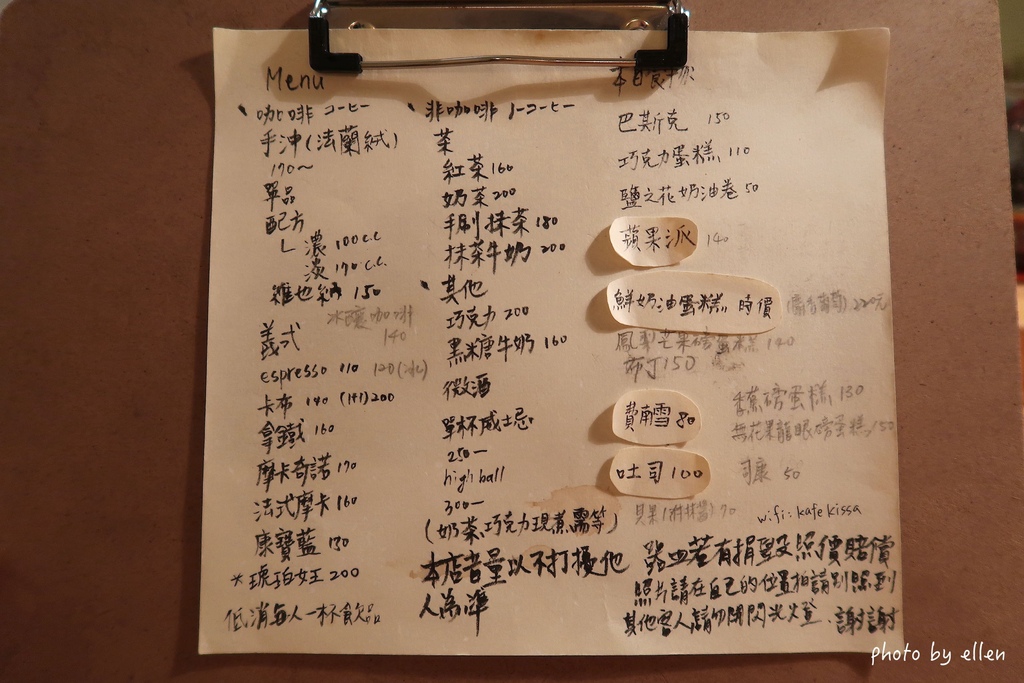 Menu
、咖啡 コーヒー
手沖(法蘭絨)
170~
單品
配方
L 濃 100c.c
淡 170c.c.
維也納 150
冰釀咖啡
140
義式
espresso 110 120(冰)
卡布 140 (1+1)200
拿鐵 160
摩卡奇諾 170
法式摩卡 160
康寶藍 130
*琥珀女王 200
低消每人一杯飲品
、非咖啡 ノーコーヒー
茶
紅茶 160
奶茶 200
手刷抹茶 180
抹茶牛奶 200
、其他
巧克力 200
黑糖牛奶 160
微酒
單杯威士忌
250一
high ball
300一
(奶茶.巧克力現煮需等)
本店音量以不打擾他
人為準
本日
巴斯克 150
巧克力蛋糕 110
鹽之花奶油卷 50
蘋果派 140
鮮奶油蛋糕 時價 220元
鳳梨芒果磅蛋糕 140
布丁150
香蕉磅蛋糕 130
費南雪 80
無花果龍眼磅蛋糕 150
吐司 100
司康 50
貝果 70
wifi:kafekissa
器皿若有損毀照價賠償
照片請在自己的位置拍請別照到
其他客人請勿開閃光燈、謝謝
photo by ellen